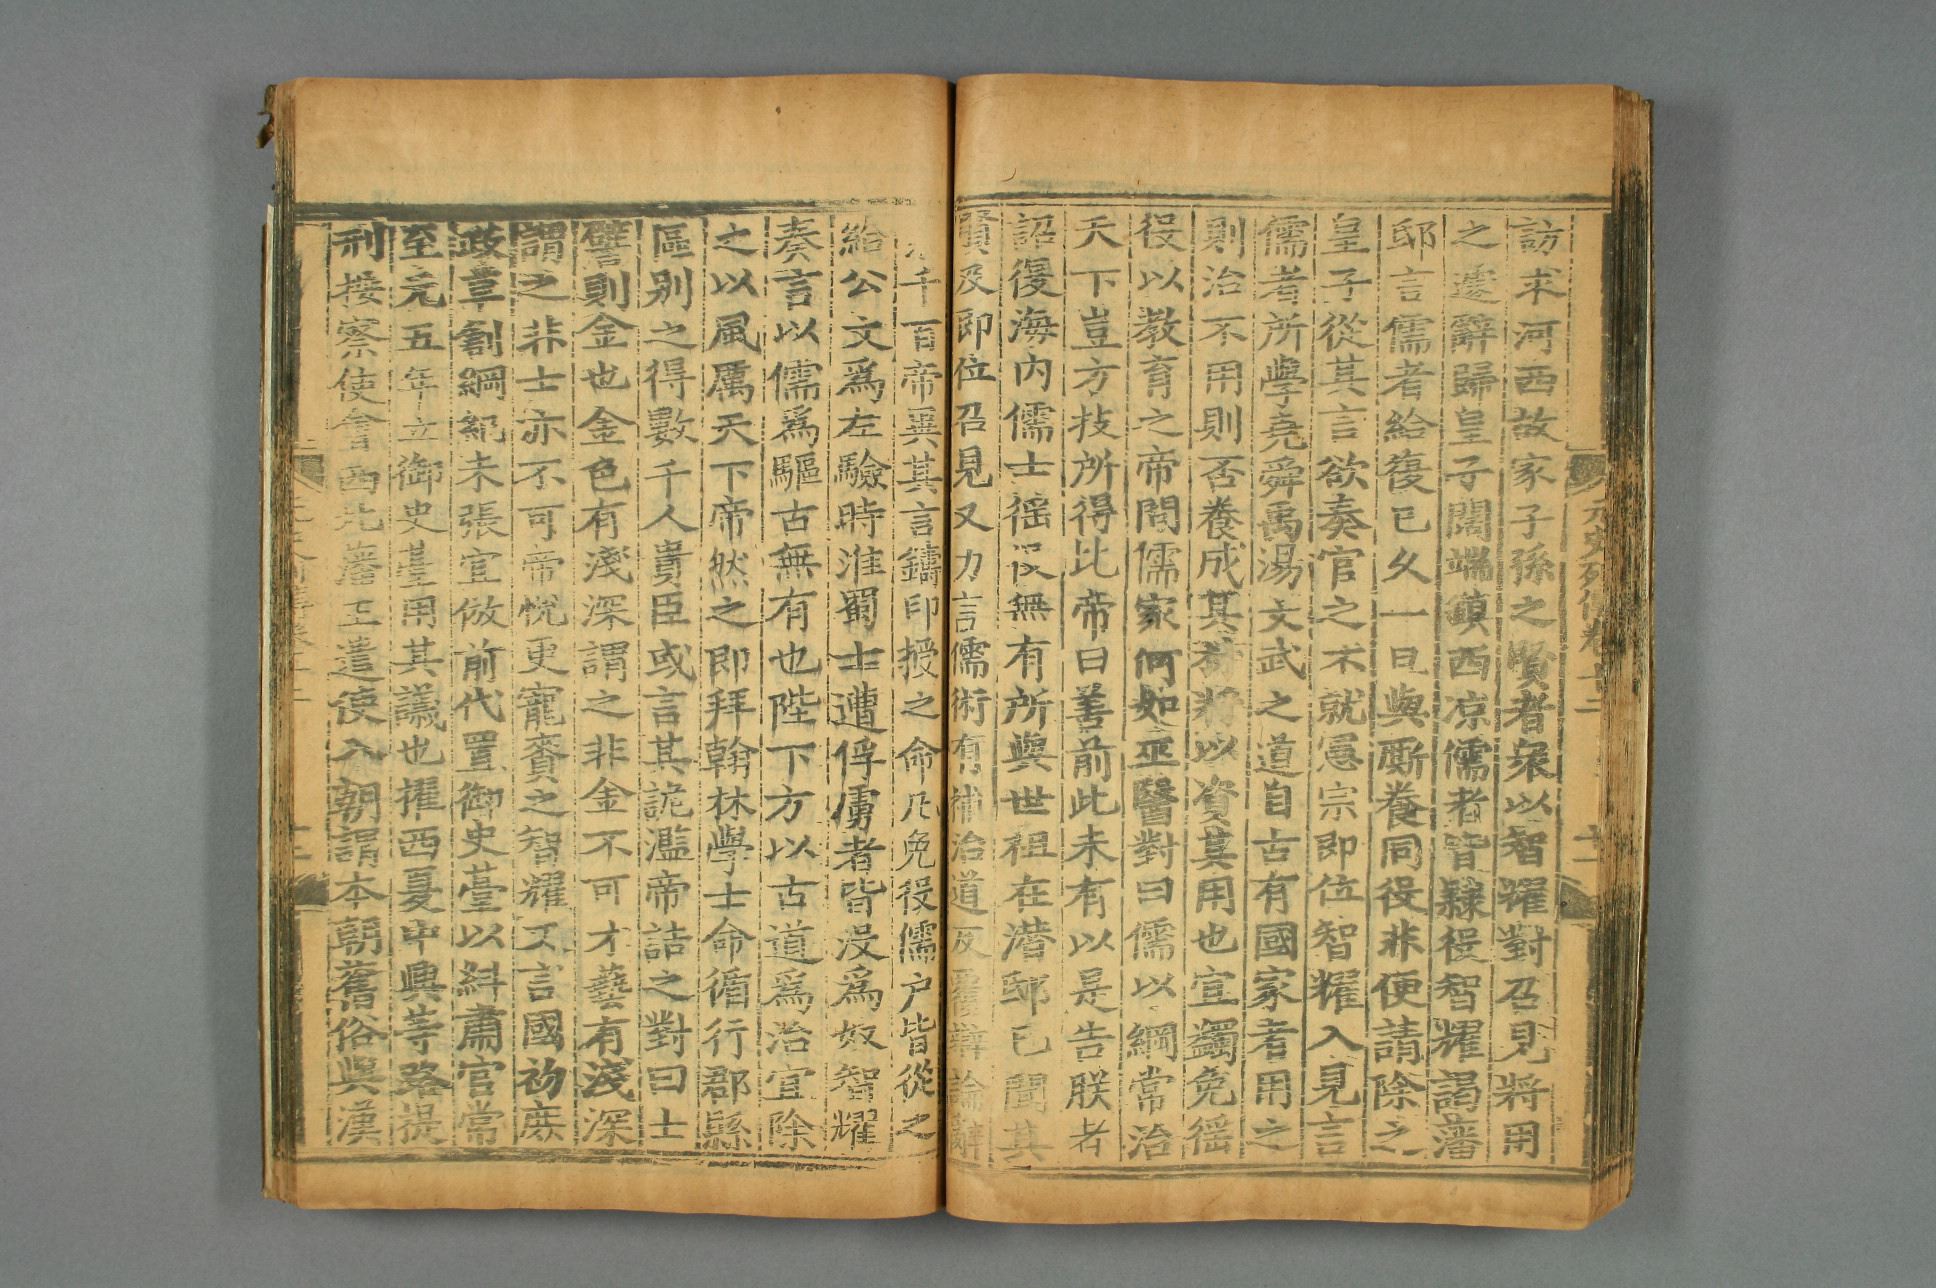 訪求河西故家子孫之賢者衆以智耀對召見將用
之遽辭歸皇子闊端鎮西凉儒者皆隸役智耀謁藩
邸言儒者給復已久一旦與厮養同役非便請除之
皇子從其言欲奏官之不就憲宗即位智耀入見言
儒者所學堯舜禹湯文武之道自古有國家者用之
則治不用則否養成其材將以資其用也宜蠲免徭
役以教育之帝問儒家何如巫醫對曰儒以綱常治
天下豈方技所得比帝曰善前此未有以是告朕者
詔復海内儒士徭役無有所與世祖在潛邸已聞其
賢及即位召見又力言儒術有補治道反覆辯論辭
千百帝異其言鑄印授之命凡免役儒户皆從之
給公文爲左驗時淮蜀士遭俘虜者皆没爲奴智耀
奏言以儒爲驅古無有也陛下方以古道爲治宜除
之以風厲天下帝然之即拜翰林學士命循行郡縣
區别之得數千人貴臣或言其詭濫帝詰之對曰士
譬則金也金色有淺深謂之非金不可才藝有淺深
謂之非士亦不可帝悦更寵賚之智耀又言國初庶
政草創綱紀未張宜倣前代置御史臺以糾肅官常
至元五年立御史臺用其議也擢西夏中興等路提
刑按察使會西北藩王遣使入朝謂本朝舊俗與漢
元史列傳卷十二
十一